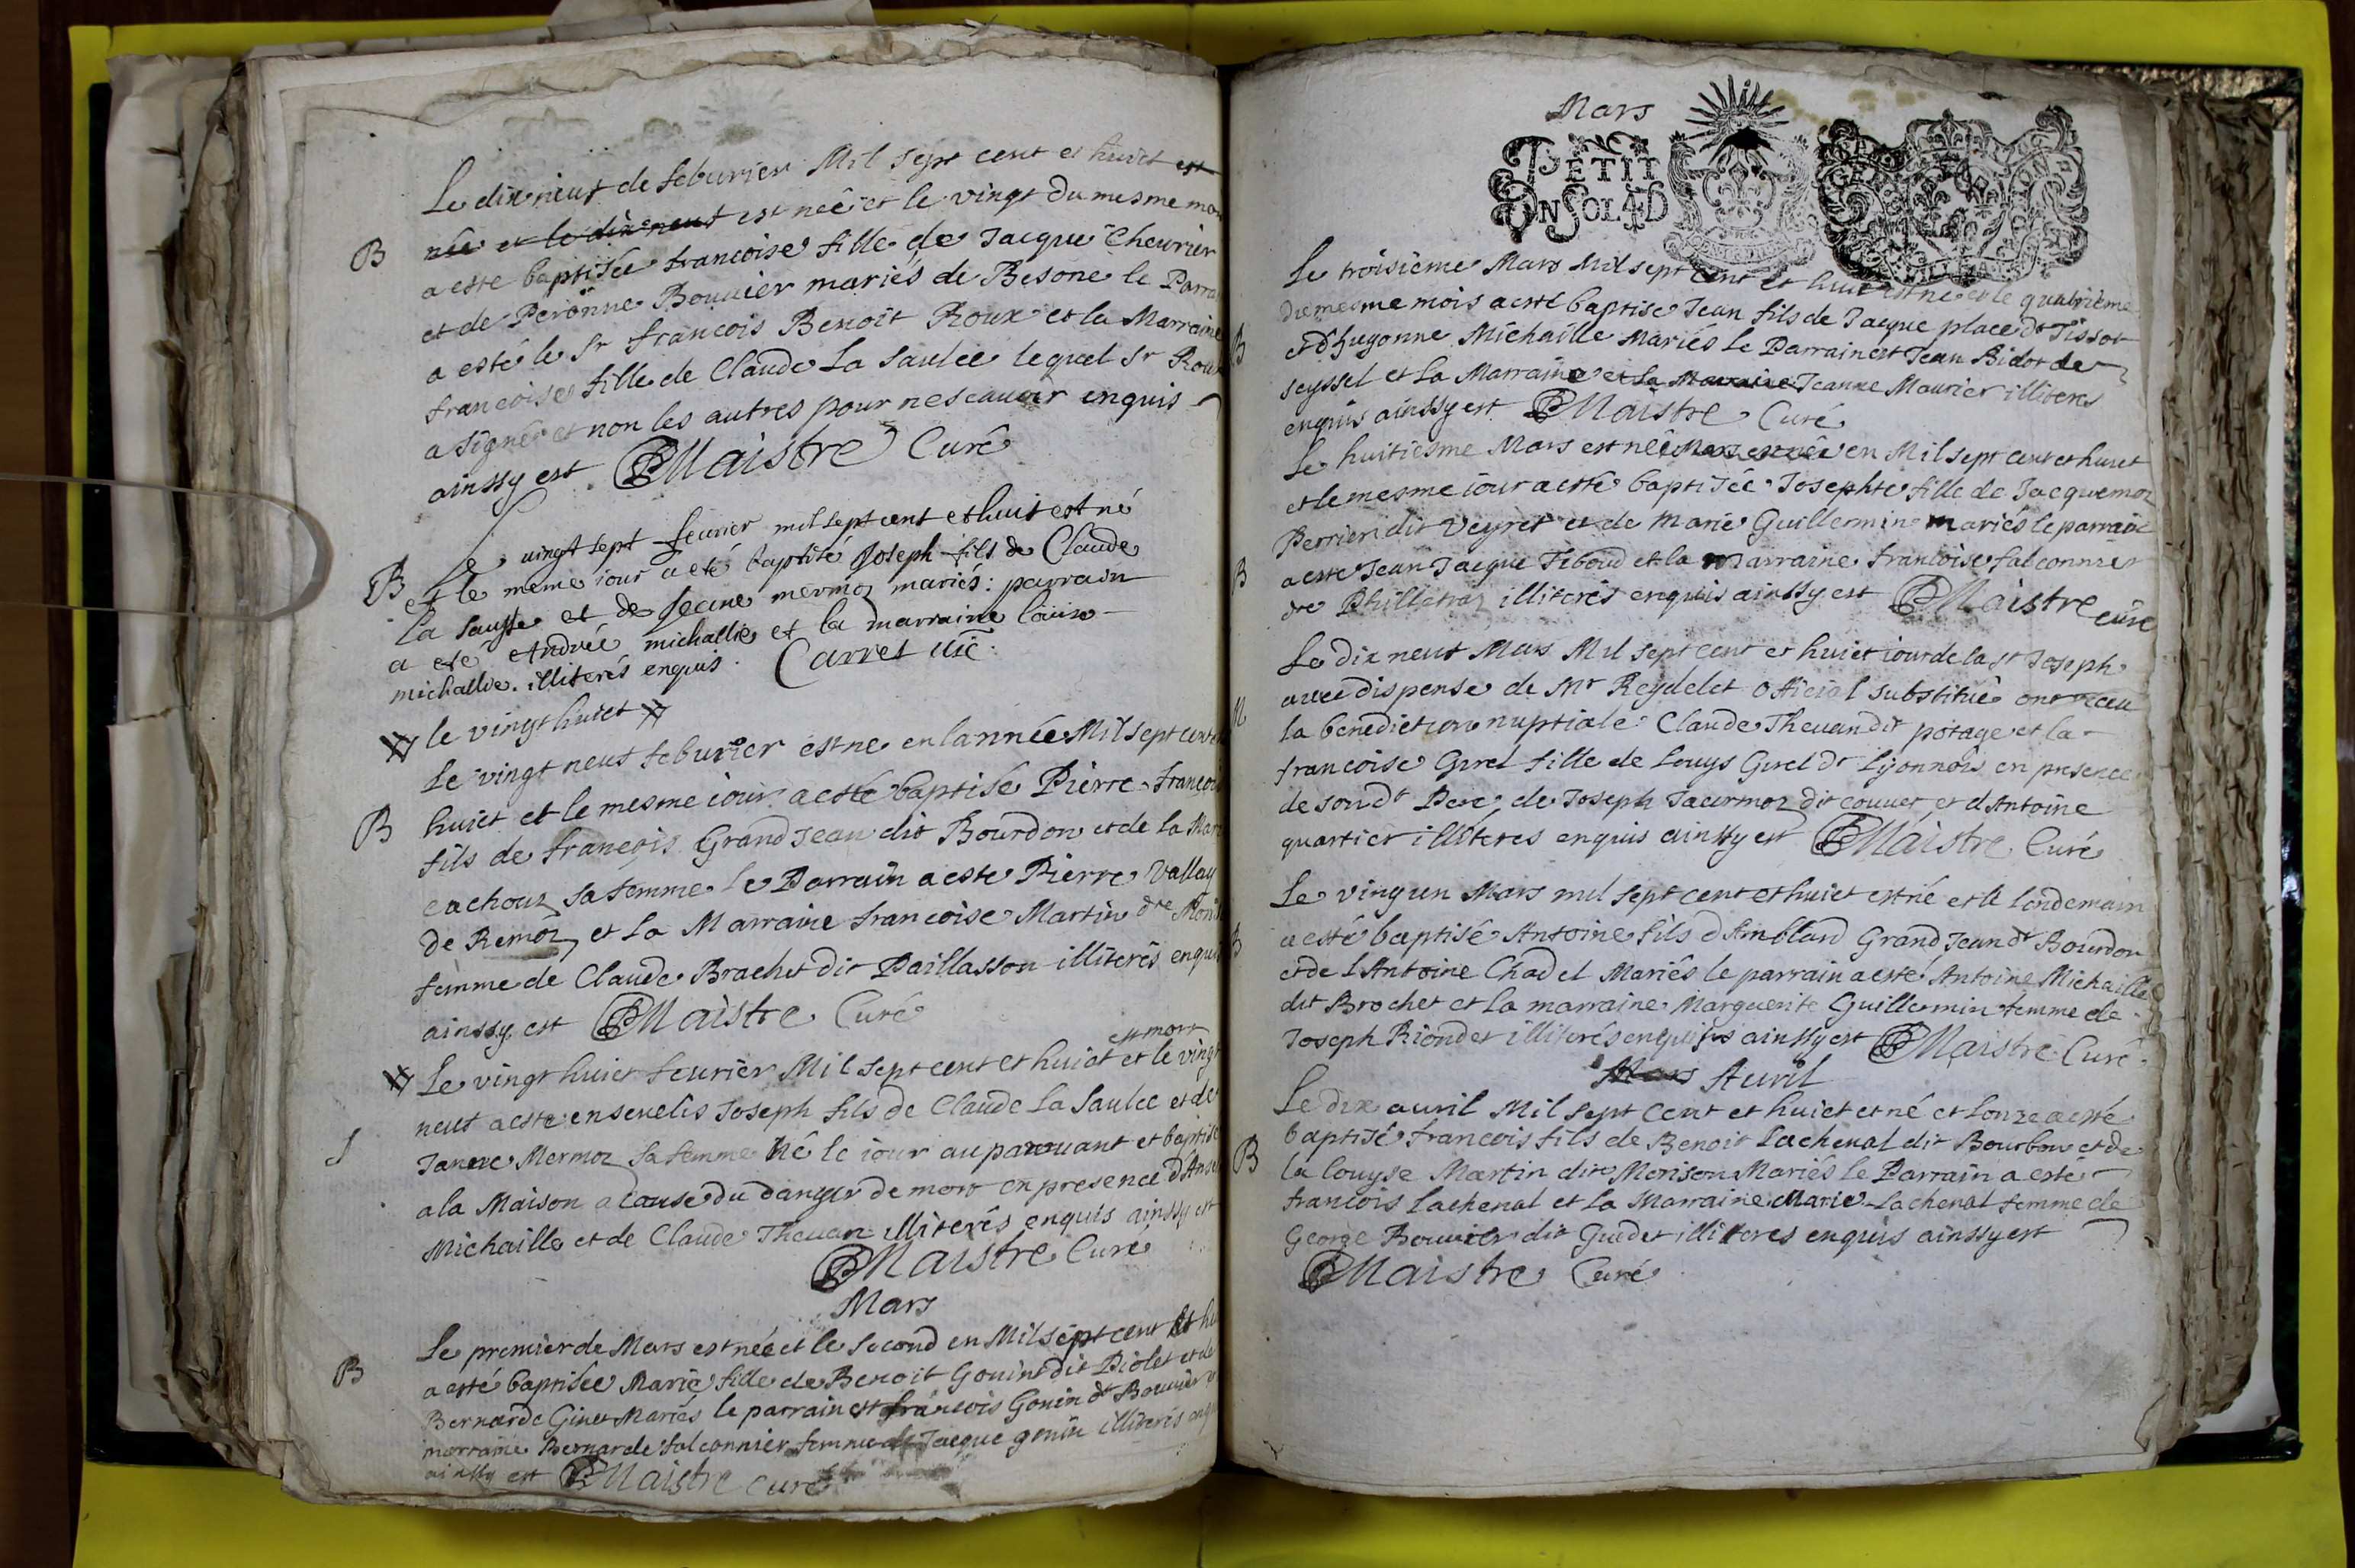 Le dix neuf de feburier Mil sept cent et huict est
B
née et le dix neuf est née et le vingt du mesme mois
a esté baptisée francoise fille de Jacque Cheurier
et de Peronne Bouuier mariés de Besone le Parra
a esté le Sr francois Benoit Roux et la Marraine
francoise fille de Claude La Saulee lequel Sr Roux
a signé et non les autres pour ne scauoir enquis
ainssy est Maistre Curé
Le uingt sept feurier mil sept cent et huit est né
B
et le meme iour a eté baptisé Joseph fils de Claude
La Saulse et de Jeane mermoz mariés: parrain
a eté Andrée michallie et la marraine louise
michallie. illiterés enquis. Carrel uic.
le vingt huict
Le vingt neuf feburier est ne en lannée Mil sept cent
B
huict et le mesme iour a esté baptisé Pierre francois
fils de francois Grand Jean dit Bourdon et de la Mar
cachouz sa femme le Parrain a este Pierre Vallay
de Remoz et La Marraine francoise Martin dte Moris
femme de Claude Brachet dit Paillasson illiterés enquis
ainssy est Maistre Curé
est mort
Le vingt huict feurier Mil sept cent et huict et le vingt
neuf a este enseuelis Joseph fils de Claude La Saulee et de
S
Janne Mermoz sa femme Né le iour auparauant et baptisé
a la Maison a Cause du danger de mort en presence d'Ans
Michaille et de Claude Theuan illiterés enquis ainssy est
Maistre Curé
Mars
Le premier de Mars est née et le second en Mil sept cent et hu
B
a esté baptisée Marie fille de Benoit Gouin dit Piolet et de
Bernarde Ginet Mariés le parrain est francois Gonin dt Bouuier
marraine Bernarde falconnier femme de Jacque gonin illiterés enqu
ainssy est Maistre Curé
Mars
PETIT
UN SOL 4D
Le troisième Mars Mil sept cent et huict est né et le quatrième
du mesme mois a esté baptise Jean fils de Jacque place dt Tissot
B
et d'hugonne Michaille Mariés Le Parrain est Jean Bidot de
seyssel et La Marraine et La Marraine Jeanne Maurier illiteres
enquis ainssy est Maistre Curé
Le huitiesme Mars est née Mars est née en Mil sept cent et huict
et le mesme iour a esté baptisée Josephte fille de Jacquemoz
Perrier dit Veyret et de Marie Guillermin mariés le parrain
B
a este Jean Jacque Tiboud et la marraine francoise falconnier
dte illiterés enquis ainssy est Maistre curé
Le dix neuf Mars Mil sept cent et huict iour de la st Joseph
auec dispense de Mr Reydelet Official substitué ont receu
M
la benediction nuptiale Claude Theuan dit potage et la
francoise Girel fille de Louys Girel dt Lyonnois en presence
de son dt Pere, de Joseph Jacermoz dit couuet et d Antoine
quartier illiteres enquis ainssy est Maistre Curé
Le vingt un Mars mil sept cent et huict est né et le lendemain
B
a esté baptisé Antoine fils d Amblard Grand Jean dt Bourdon
et de l Antoine Chadel Mariés le parrain a esté Antoine Michaille
dit Brochet et la marraine Marguerite Guillermin femme de
Joseph Riondet illiterés enquis ainssy est Maistre Curé
Mars Auril
Le dix auril Mil sept Cent et huict et né et l'onze a esté
baptisé francois fils de Benoit Lachenal dit Bourbon et de
B
la louyse Martin dite Morison Mariés le Parrain a esté
francois Lachenal et La Marraine Marie Lachenal femme de
George Bouuier dit Guedet illiteres enquis ainssy est
Maistre Curé